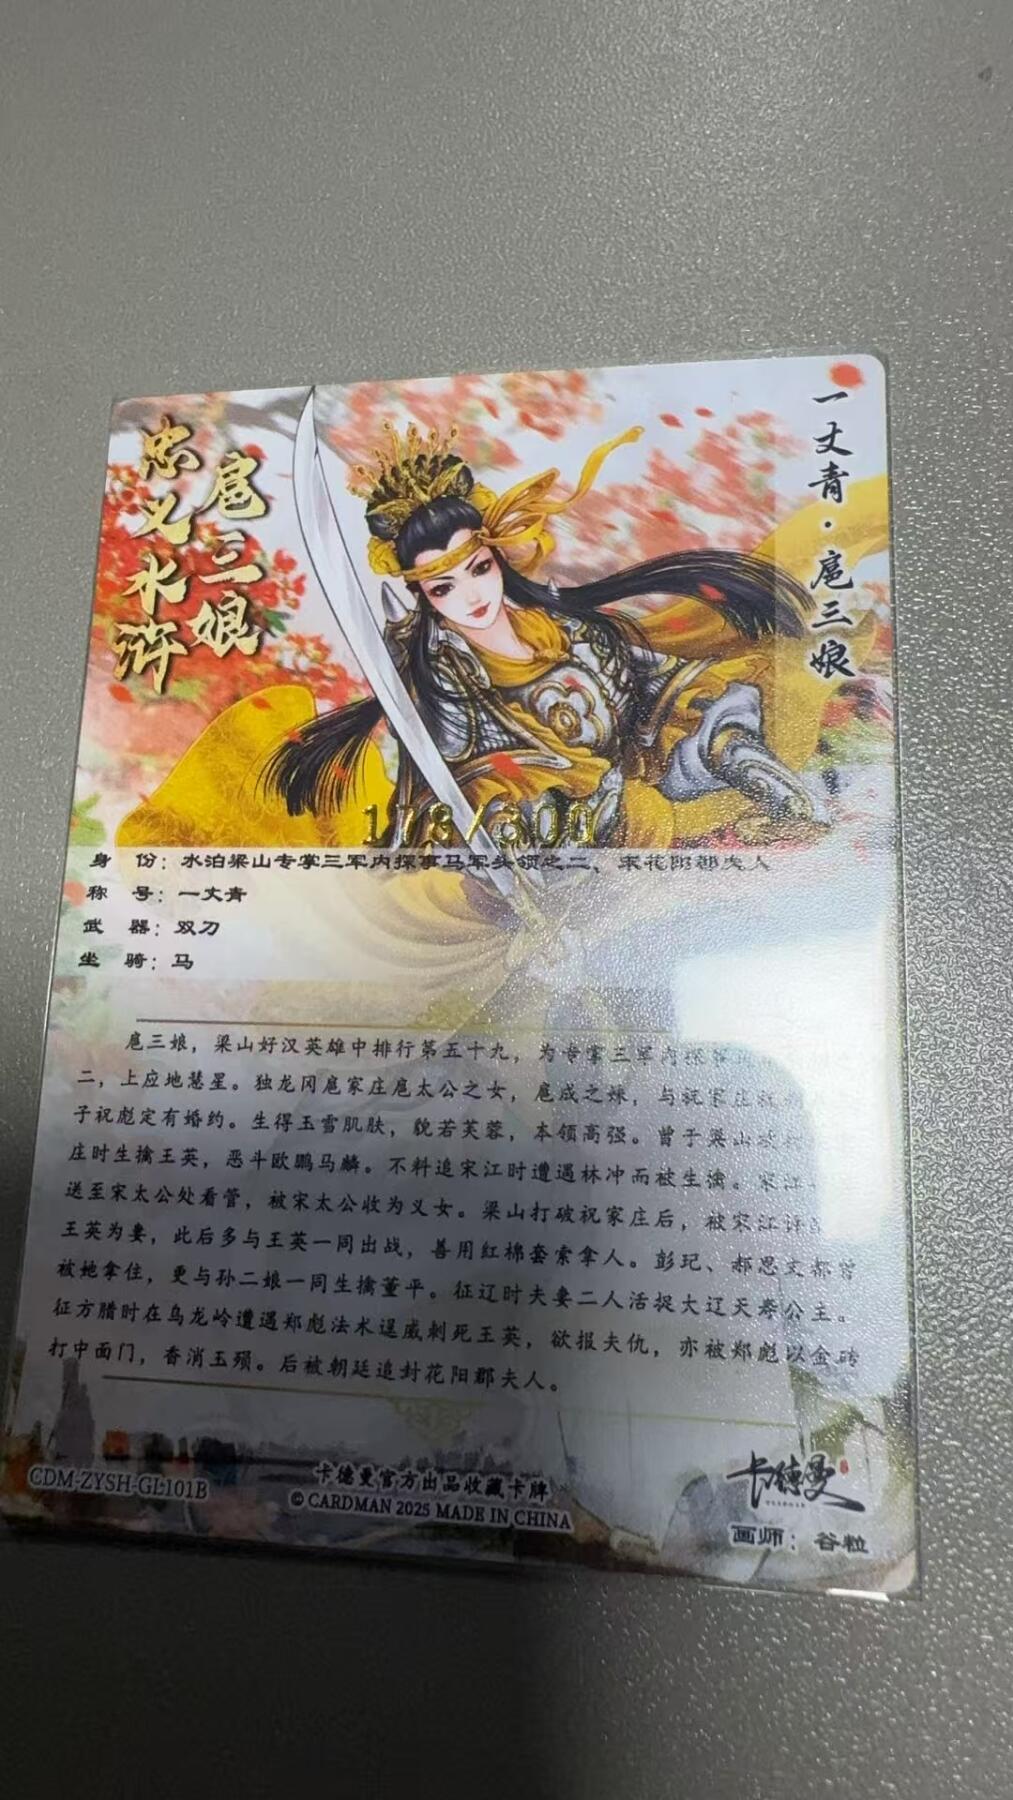 忠义水浒
扈三娘
一丈青·扈三娘
178/300
身 份：水泊梁山专掌三军内探事马军头领之二、宋花阳郡夫人
称 号：一丈青
武 器：双刀
坐 骑：马
扈三娘，梁山好汉英雄中排行第五十九，为专掌三军内探事
二，上应地慧星。独龙冈扈家庄扈太公之女，扈成之妹，与祝家庄
子祝彪定有婚约。生得玉雪肌肤，貌若芙蓉，本领高强。曾于梁山攻
庄时生擒王英，恶斗欧鹏马麟。不料追宋江时遭遇林冲而被生擒。宋江
送至宋太公处看管，被宋太公收为义女。梁山打破祝家庄后，被宋江许
王英为妻，此后多与王英一同出战，善用红棉套索拿人。彭玘、郝思文都曾
被她拿住，更与孙二娘一同生擒董平。征辽时夫妻二人活捉大辽天寿公主。
征方腊时在乌龙岭遭遇郑彪法术逞威刺死王英，欲报夫仇，亦被郑彪以金砖
打中面门，香消玉殒。后被朝廷追封花阳郡夫人。
CDM-ZYSH-GL101B
卡德曼官方出品收藏卡牌
© CARDMAN 2025 MADE IN CHINA
卡德曼
画师：谷粒